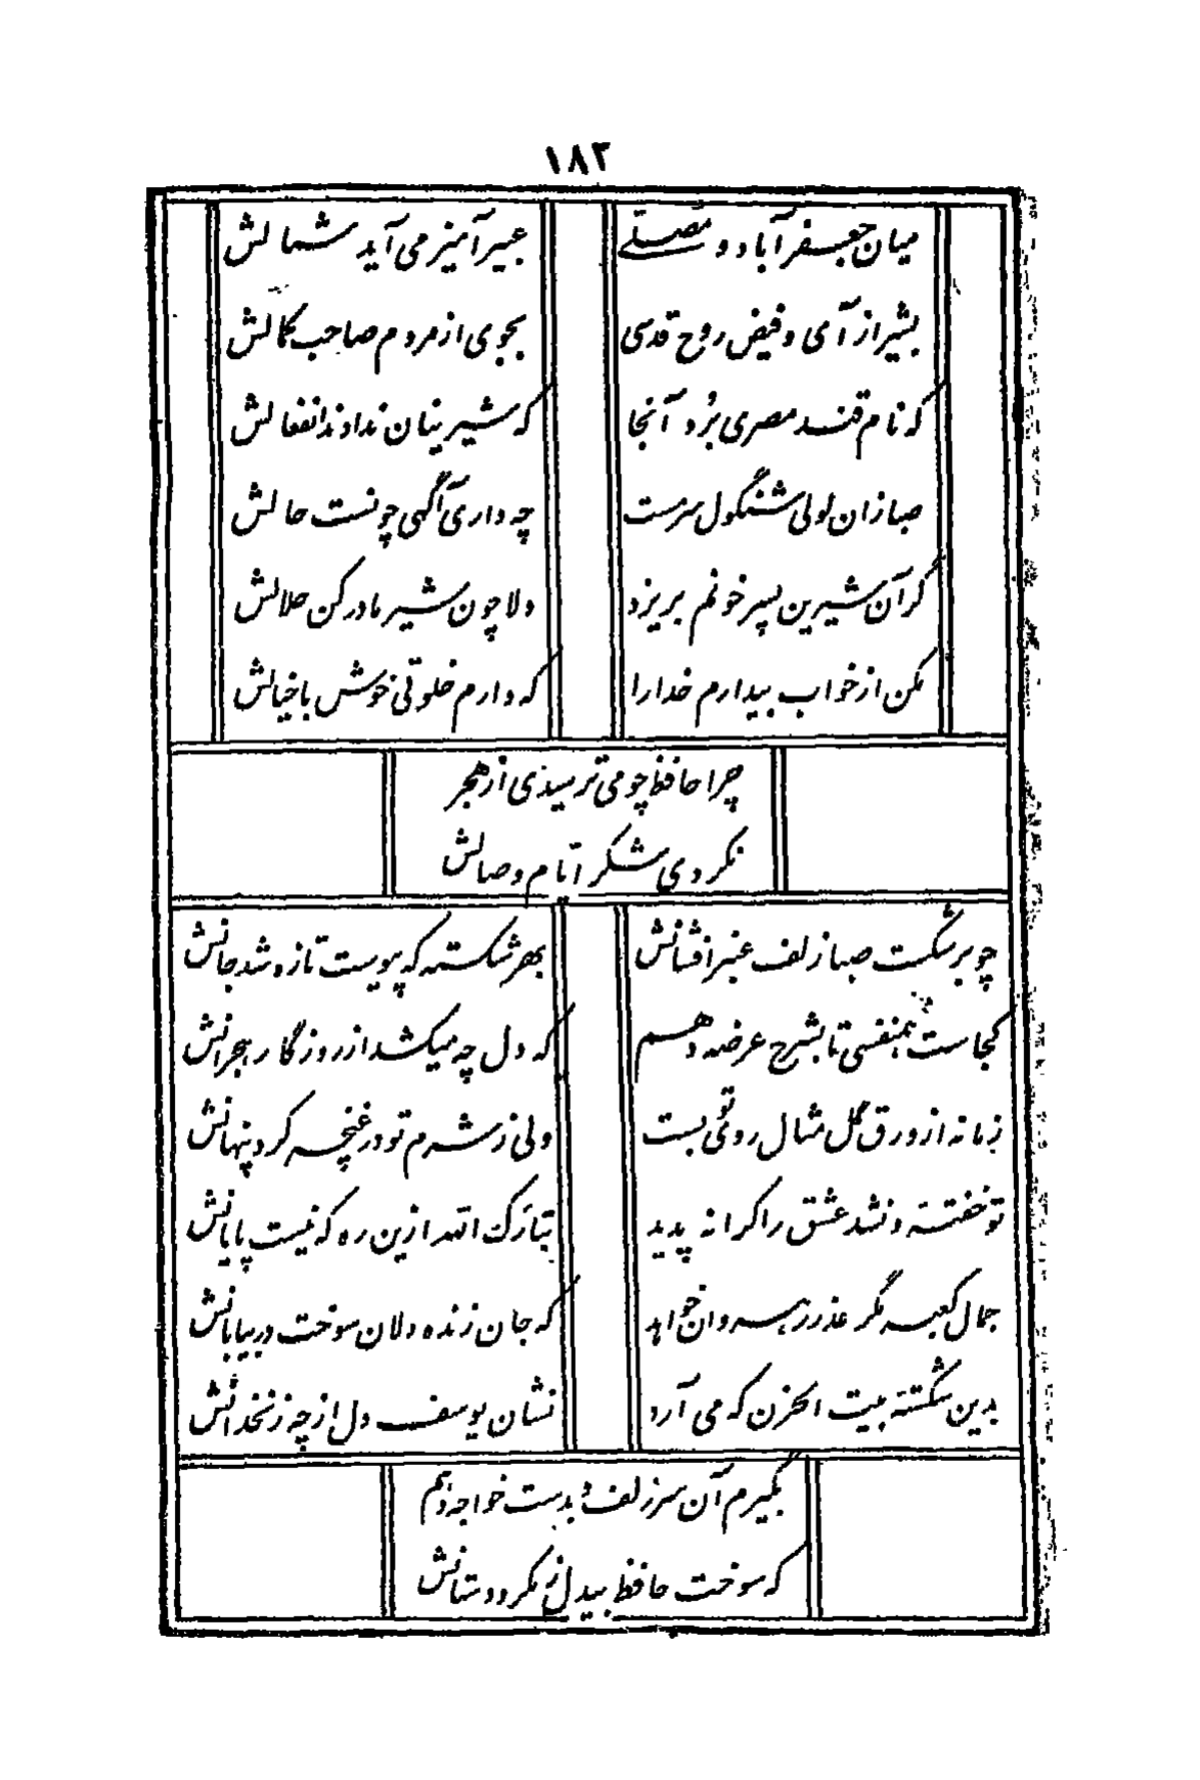 ۱۸۳
میان جعفرآباد و مصلے
عبیر آمیز می آید شمالش
بشیراز آی و فیض روح قدسی
بجوی از مردم صاحب کمالش
که نام قند مصری برد آنجا
که شیرینان ندادند انفعالش
صبا زان لولی شنگول سرمست
چه داری آگهی چونست حالش
گر آن شیرین پسر خونم بریزد
دلا چون شیر مادر کن حلالش
مکن از خواب بیدارم خدارا
که دارم خلوتی خوش با خیالش
چرا حافظ چو می ترسیدی از هجر
نکردی شکر ایام وصالش
چو برشکست صبا زلف عنبر افشانش
بهر شکسته که پیوست تازه شد جانش
کجاست همنفسی تا بشرح عرضه دهم
که دل چه میکشد از روزگار هجرانش
زمانه از ورق گل مثال روی تو بست
ولی ز شرم تو در غنچه کرد پنهانش
تو خفتهٔ و نشد عشق را کرانه پدید
تبارک الله ازین ره که نیست پایانش
جمال کعبه مگر عذر رهروان خواهد
که جان زنده دلان سوخت در بیابانش
بدین شکسته بیت الحزن که می آرد
نشان یوسف دل از چه زنخدانش
بگیرم آن سر زلف و بدست خواجه دهم
که سوخت حافظ بیدل ز مکر و دستانش